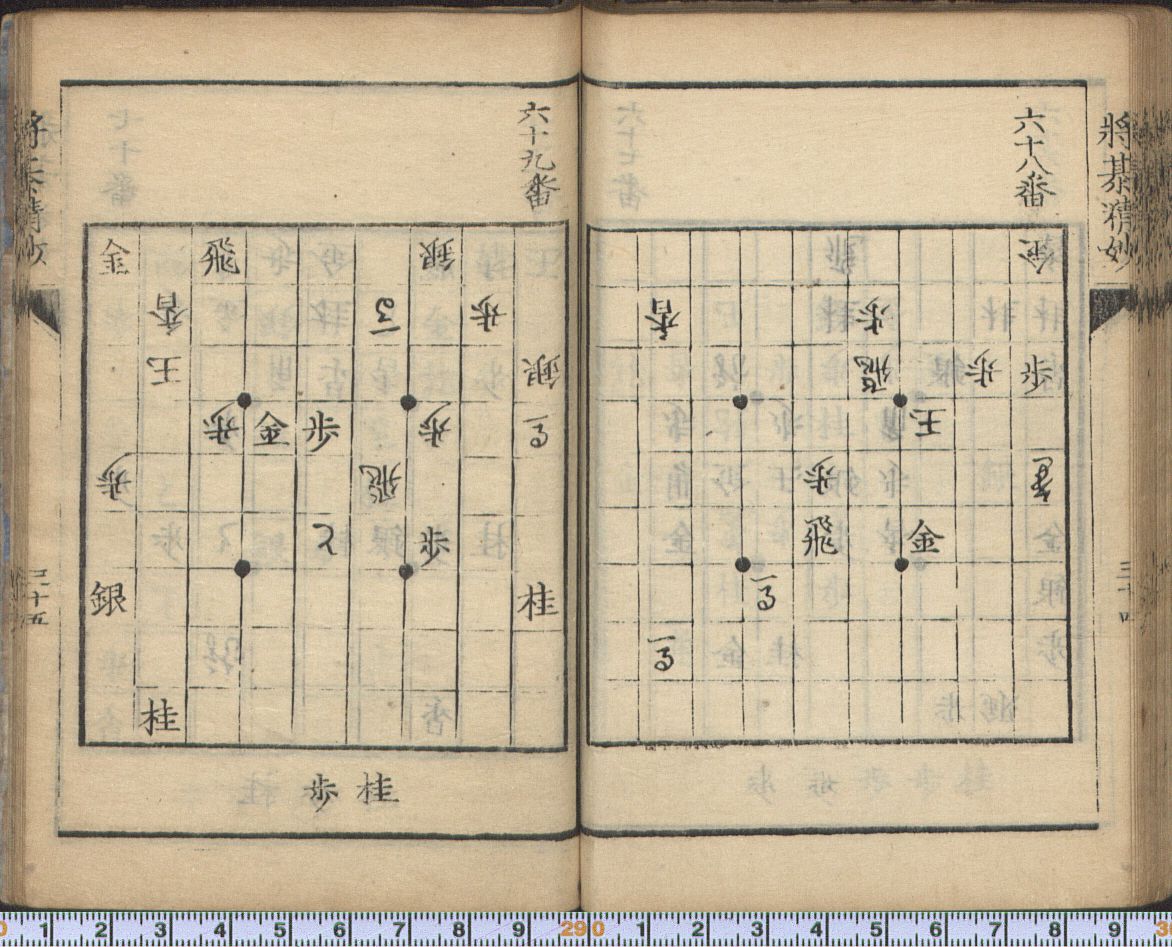 將棊精妙
六十八番
金
香 歩
飛 歩 歩
王
歩
飛 金
三十四
六十九番
金 飛 銀
香 歩
王 銀
歩 金 歩 歩
歩 飛
歩
銀 桂
桂 香
歩 桂
三十五
0 1 2 3 4 5 6 7 8 9 290 1 2 3 4 5 6 7 8 9 3